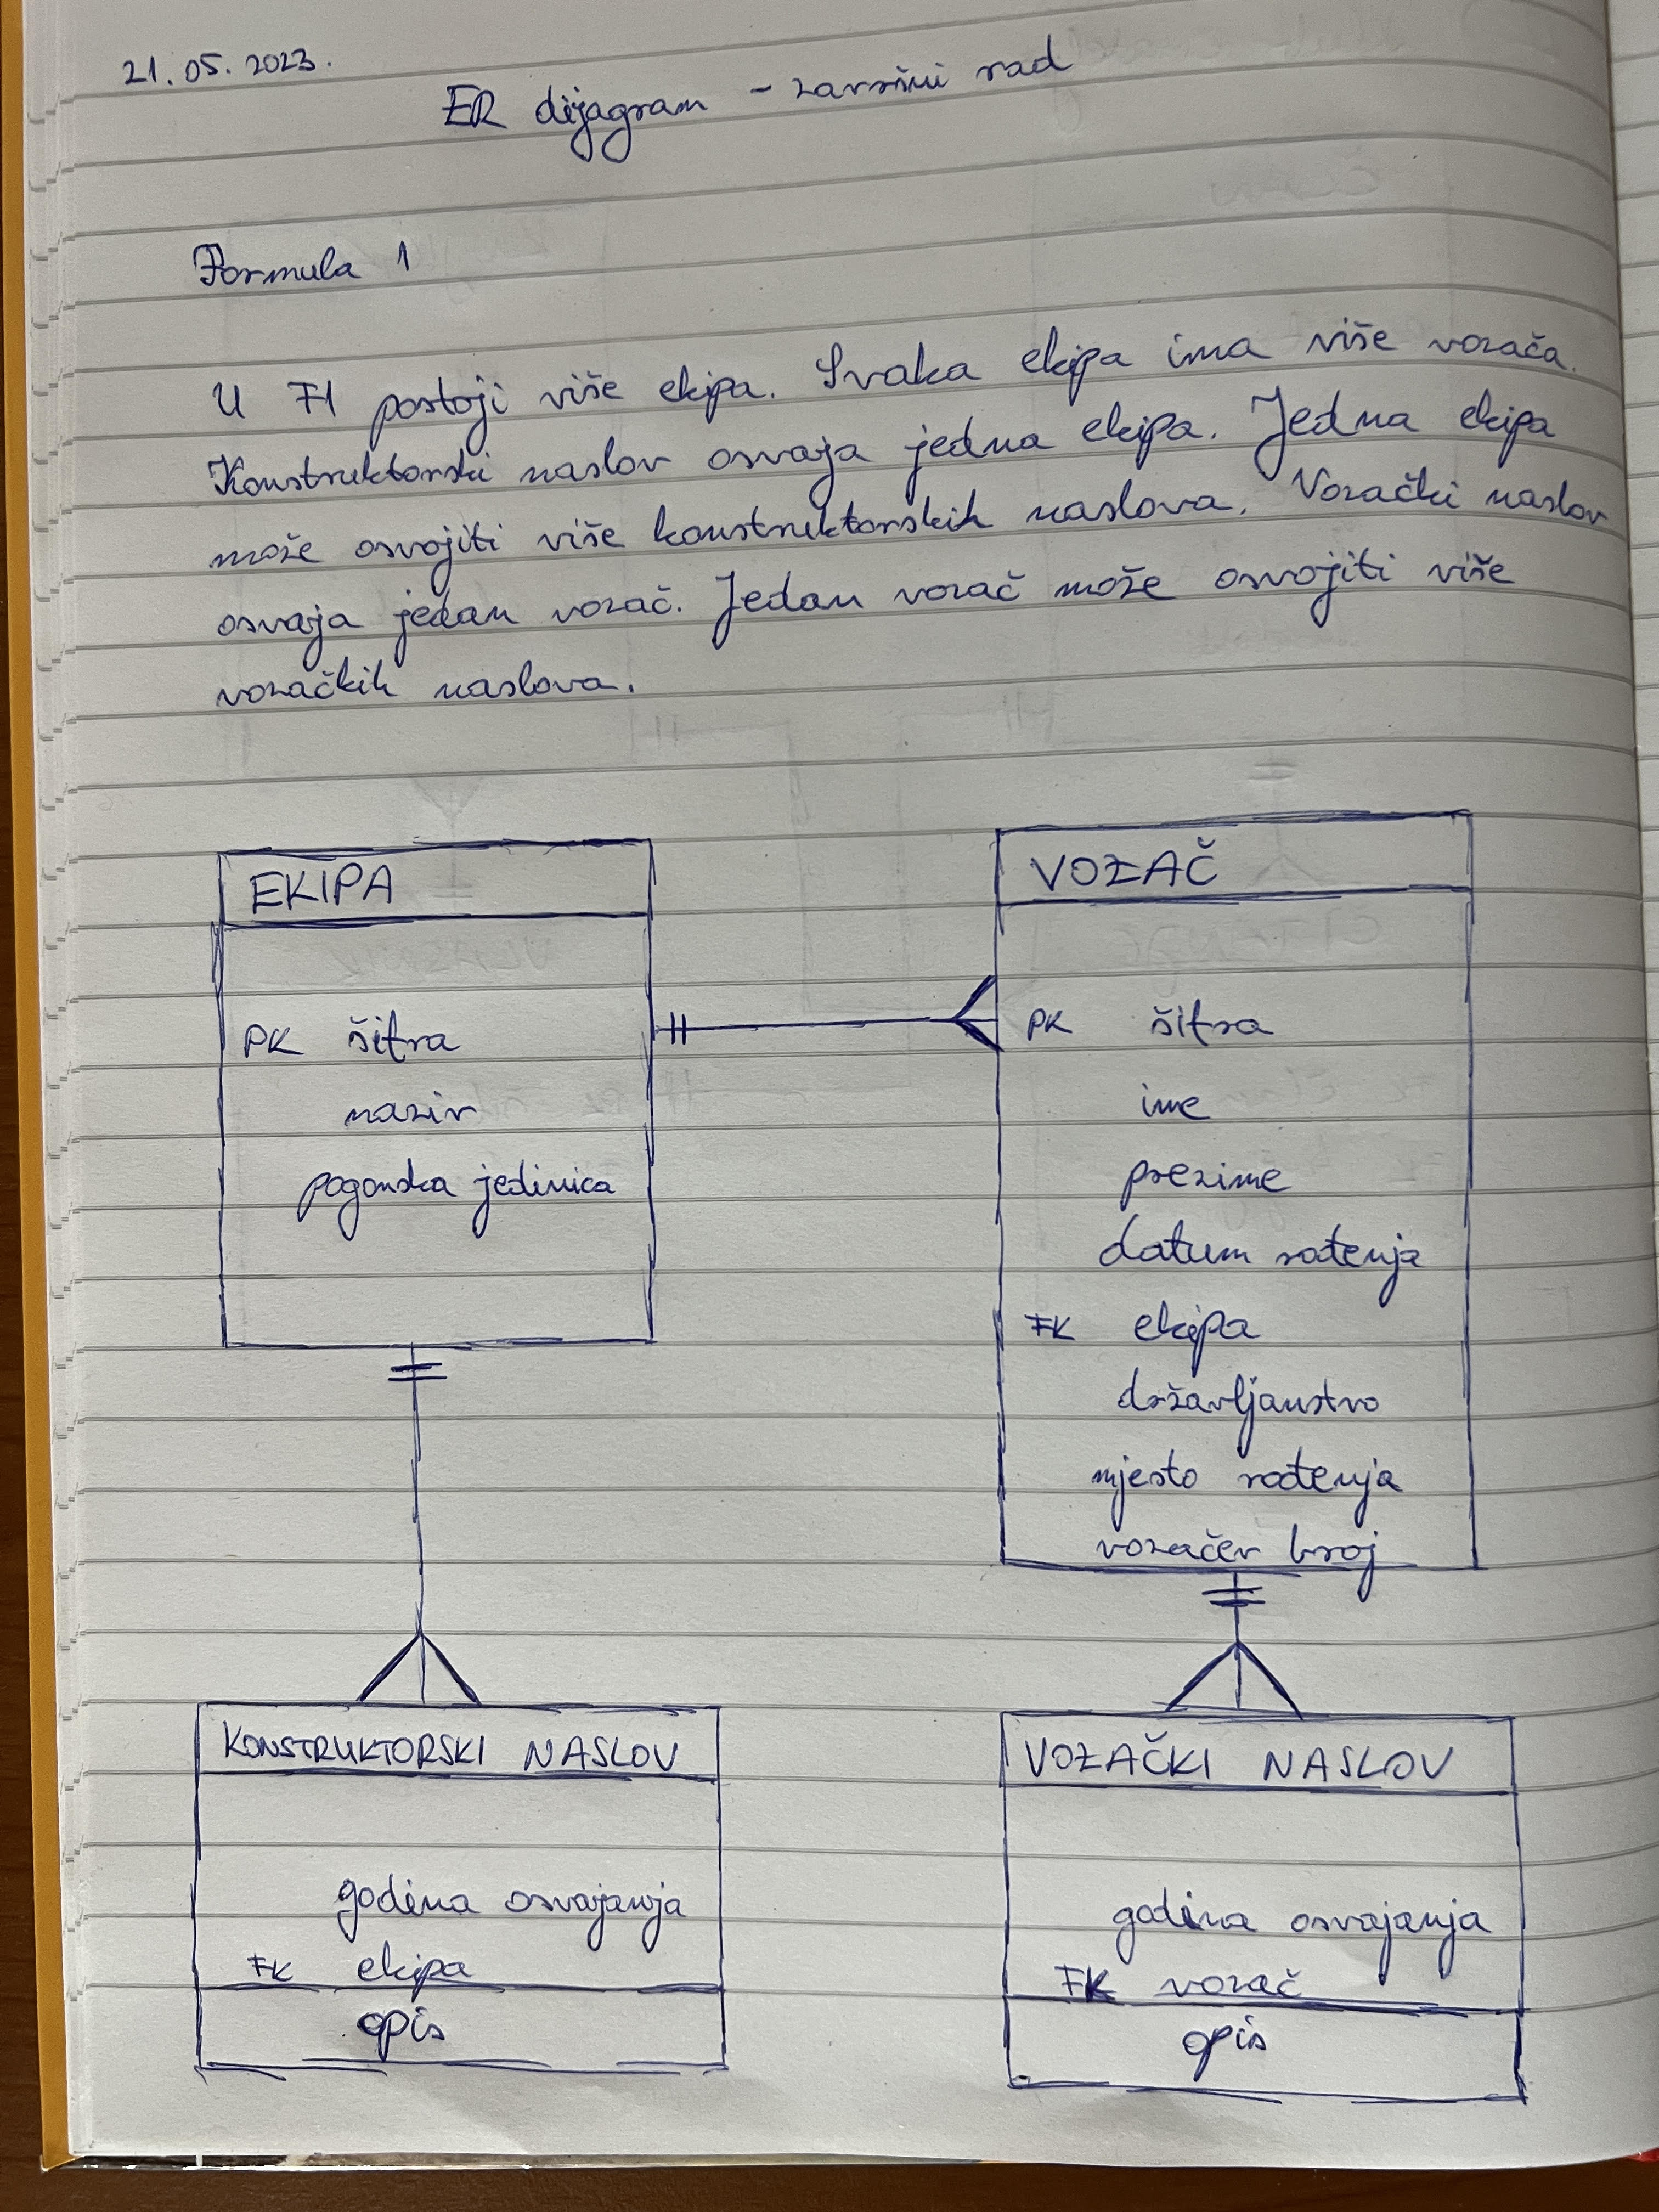 21.05.2023.
ER dijagram - završni rad
Formula 1
U F1 postoji više ekipa. Svaka ekipa ima više vozača.
Konstruktorski naslov osvaja jedna ekipa. Jedna ekipa
može osvojiti više konstruktorskih naslova. Vozački naslov
osvaja jedan vozač. Jedan vozač može osvojiti više
vozačkih naslova.
EKIPA
PK šifra
naziv
pogonska jedinica
VOZAČ
PK šifra
ime
prezime
datum rođenja
FK ekipa
državljanstvo
mjesto rođenja
vozačev broj
KONSTRUKTORSKI NASLOV
godina osvajanja
FK ekipa
opis
VOZAČKI NASLOV
godina osvajanja
FK vozač
opis